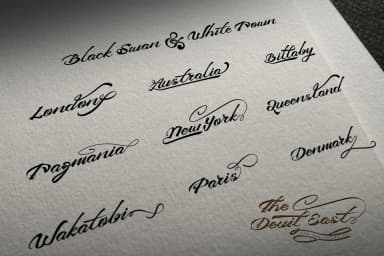 Black Swan & White Town
London
Australia
Bittaby
Tagmania
New York
Queensland
Wakatobi
Paris
Denmark
The
Devil East